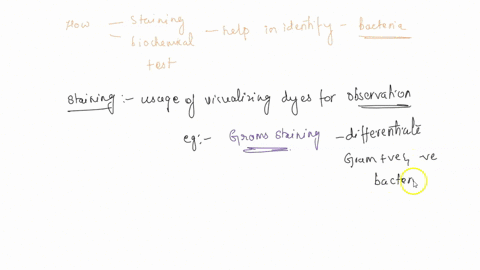 How - Staining - help in identify - bacteria
- biochemical
test
Staining :- usage of visualizing dyes for observation
eg:- Grams staining - differentiate
Gram +ve, -ve
bacteri